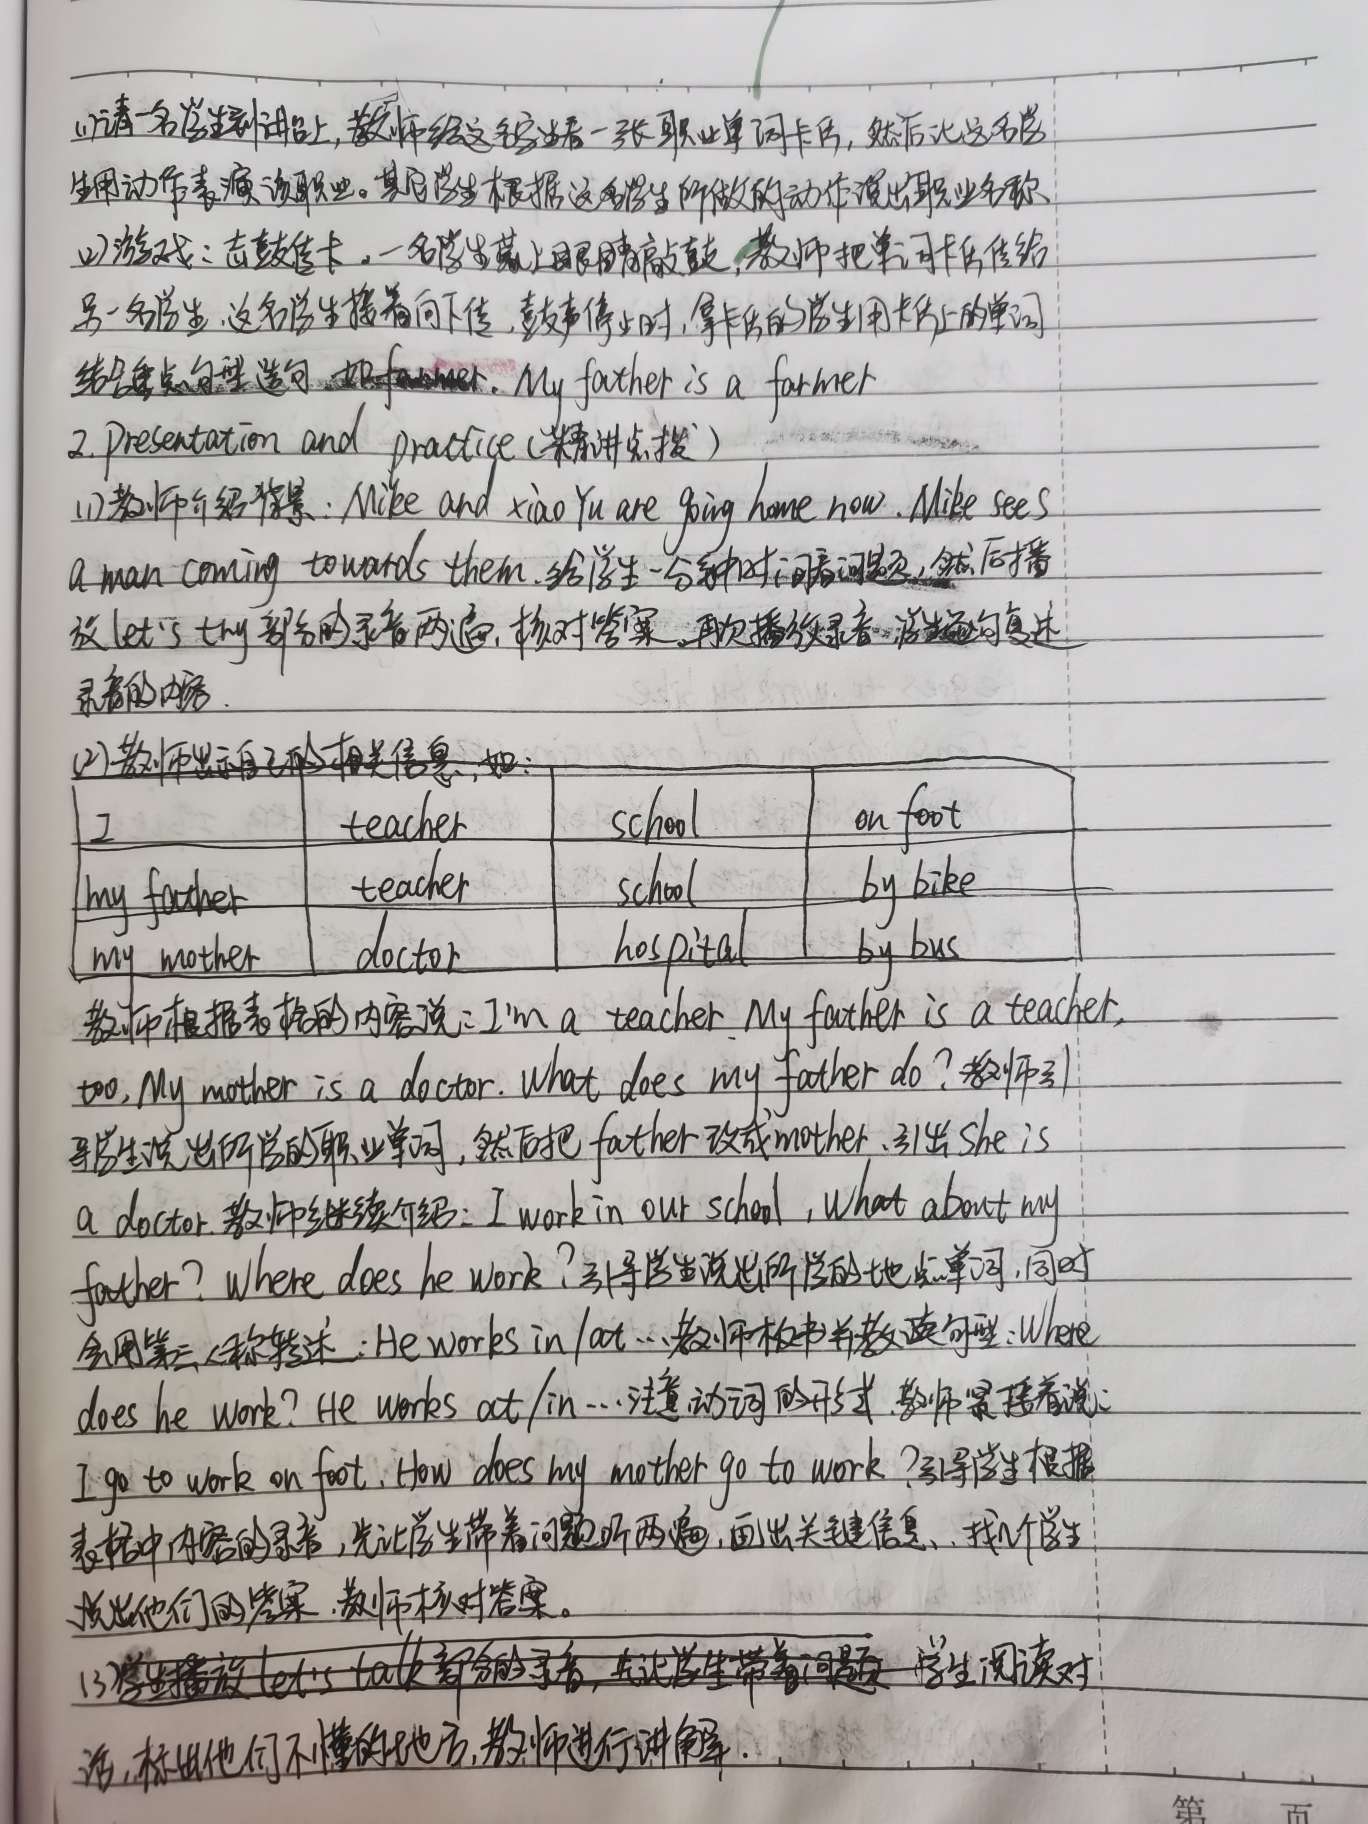 (1)请一名学生到讲台上,教师给这名学生看一张职业单词卡片,然后让这名学
生用动作表演该职业。其它学生根据这名学生所做的动作说出职业名称
(2)游戏:击鼓传卡。一名学生蒙上眼睛敲鼓,教师把单词卡片传给
另一名学生,这名学生接着向下传,鼓声停止时,拿卡片的学生用卡片上的单词
结合重点句型造句.如farmer. My father is a farmer
2. Presentation and practice(精讲点拨)
(1)教师介绍背景:Mike and xiao Yu are going home now. Mike sees
a man coming towards them.给学生一分钟时间看问题,然后播
放let's try部分的录音两遍,核对答案。再次播放录音.学生逐句复述
录音的内容.
(2)教师出示自己的相关信息,如:
I teacher school on foot
my father teacher school by bike
my mother doctor hospital by bus
教师根据表格的内容说:I'm a teacher. My father is a teacher,
too, My mother is a doctor. What does my father do?教师引
导学生说出所学的职业单词,然后把father改成mother.引出She is
a doctor.教师继续介绍:I work in our school, What about my
father? Where does he work?引导学生说出所学的地点单词,同时
会用第三人称转述:He works in/at…教师板书并教读句型:Where
does he work? He works at/in…注意动词的形式.教师紧接着说:
I go to work on foot. How does my mother go to work?引导学生根据
表格中内容的录音,先让学生带着问题听两遍,画出关键信息,找几个学生
说出他们的答案,教师核对答案。
(3)学生播放let's talk部分的录音,先让学生带着问题 学生阅读对
话,标出他们不懂的地方,教师进行讲解.
第 页